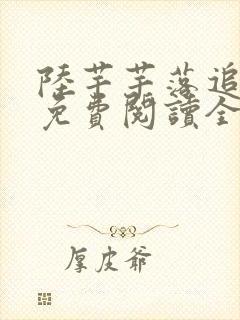 陸芊芊落追
免費閱讀全
厚皮爺